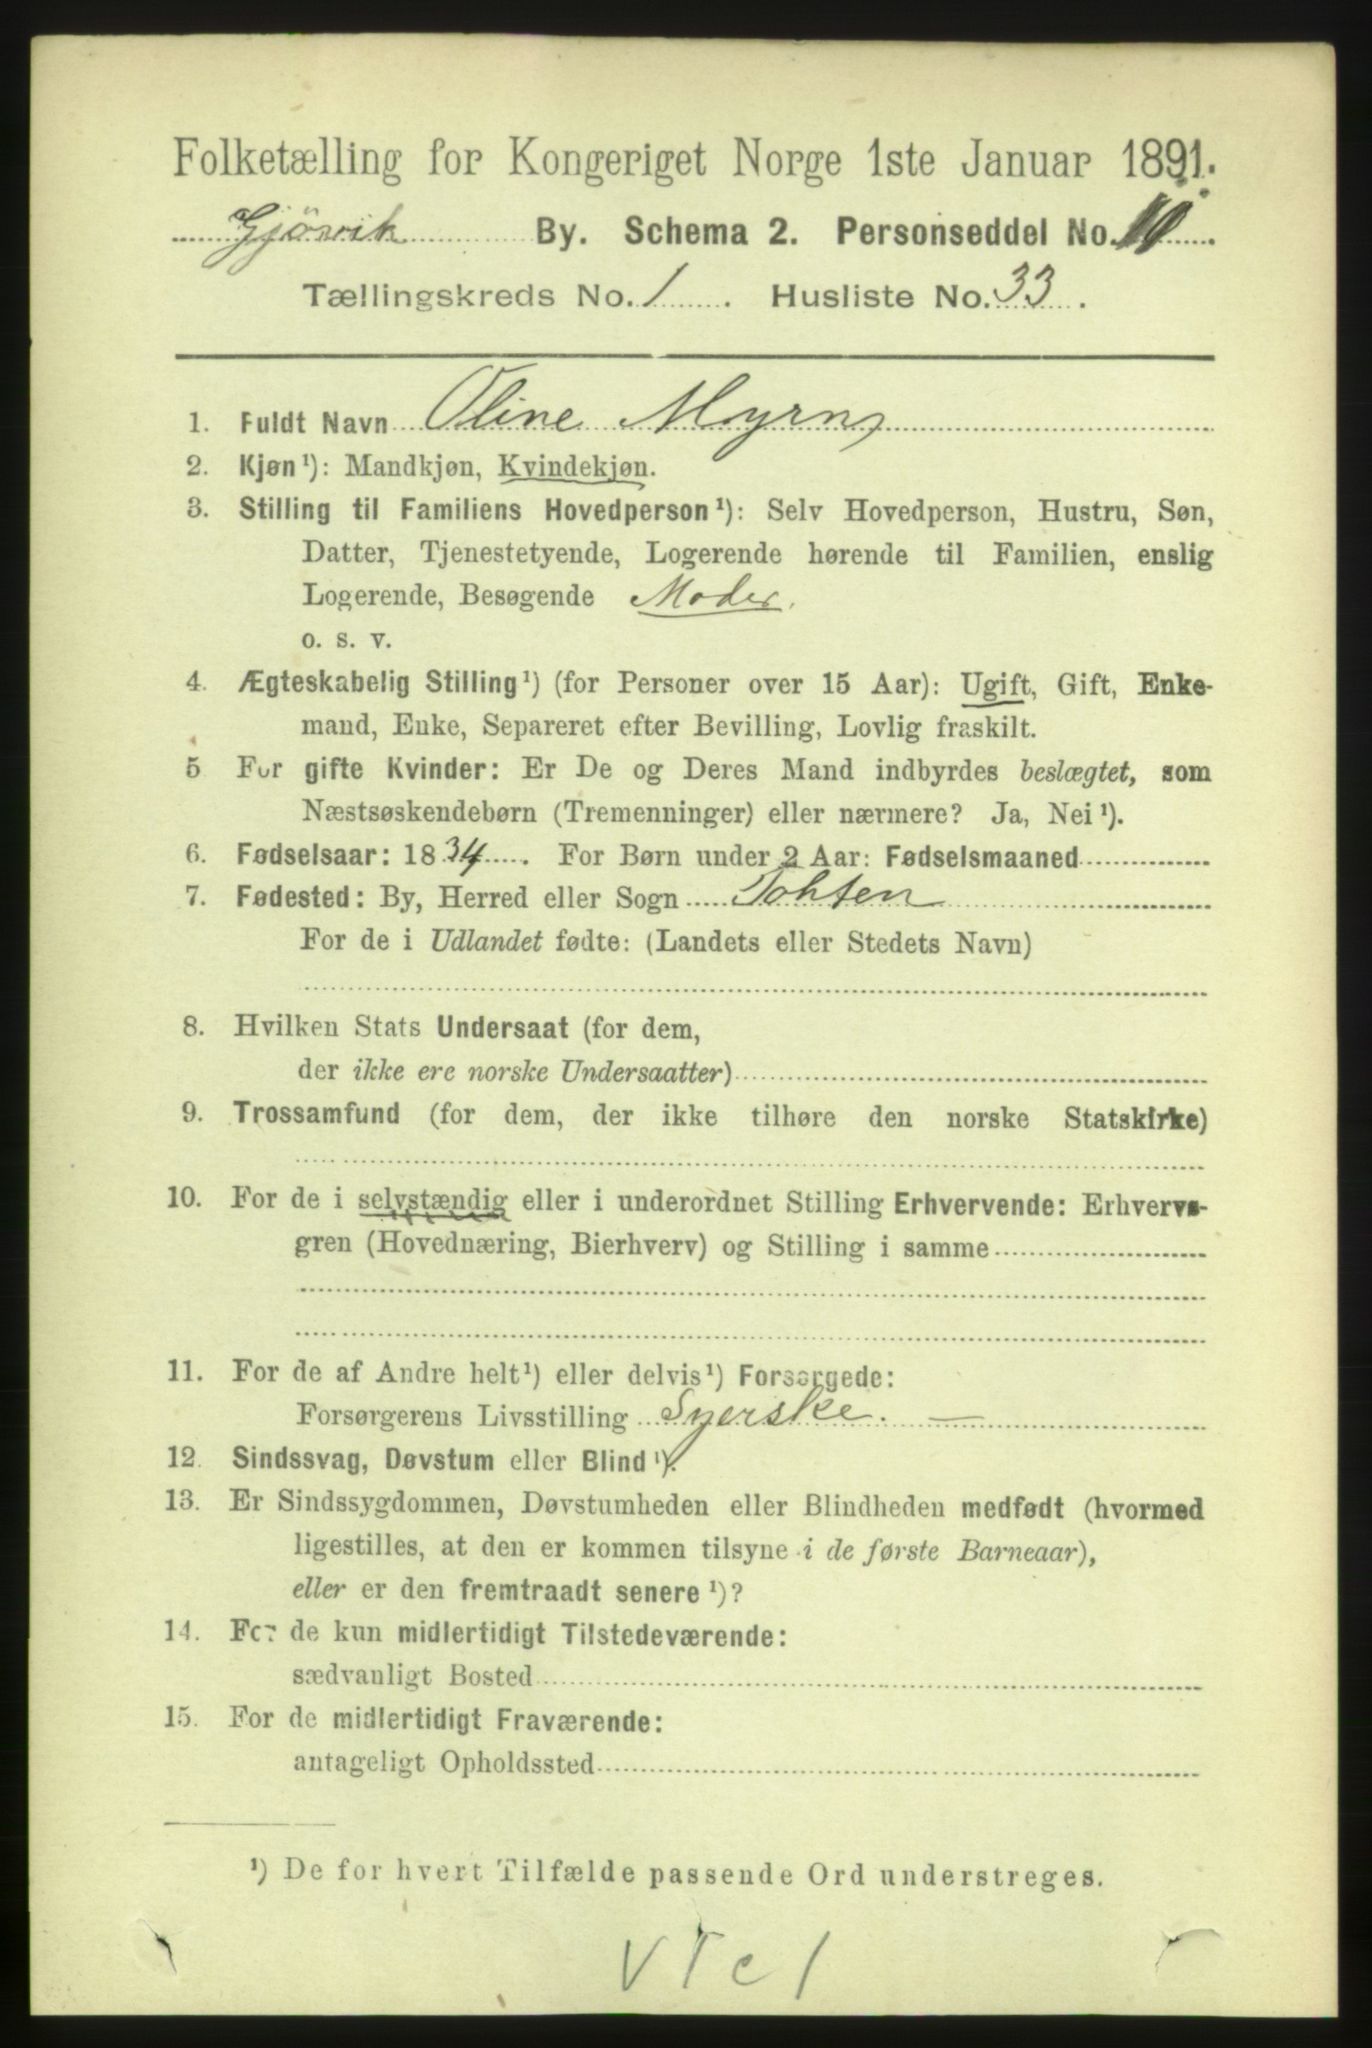 Folketælling for Kongeriget Norge 1ste Januar 1891.
Gjövik By. Schema 2. Personseddel No. 10
Tællingskreds No. 1. Husliste No. 33.
1. Fuldt Navn Oline Myrns
2. Kjøn¹): Mandkjøn, Kvindekjøn.
3. Stilling til Familiens Hovedperson¹): Selv Hovedperson, Hustru, Søn,
Datter, Tjenestetyende, Logerende hørende til Familien, enslig
Logerende, Besøgende Moder.
o. s. v.
4. Ægteskabelig Stilling¹) (for Personer over 15 Aar): Ugift, Gift, Enke-
mand, Enke, Separeret efter Bevilling, Lovlig fraskilt.
5 For gifte Kvinder: Er De og Deres Mand indbyrdes beslægtet, som
Næstsøskendebørn (Tremenninger) eller nærmere? Ja, Nei¹).
6. Fødselsaar: 1834. For Børn under 2 Aar: Fødselsmaaned
7. Fødested: By, Herred eller Sogn Tohten
For de i Udlandet fødte: (Landets eller Stedets Navn)
8. Hvilken Stats Undersaat (for dem,
der ikke ere norske Undersaatter)
9. Trossamfund (for dem, der ikke tilhøre den norske Statskirke)
10. For de i selvstændig eller i underordnet Stilling Erhvervende: Erhvervs-
gren (Hovednæring, Bierhverv) og Stilling i samme
11. For de af Andre helt¹) eller delvis¹) Forsørgede:
Forsørgerens Livsstilling Syerske. —
12. Sindssvag, Døvstum eller Blind¹).
13. Er Sindssygdommen, Døvstumheden eller Blindheden medfødt (hvormed
ligestilles, at den er kommen tilsyne i de første Barneaar),
eller er den fremtraadt senere¹)?
14. For de kun midlertidigt Tilstedeværende:
sædvanligt Bosted
15. For de midlertidigt Fraværende:
antageligt Opholdssted
¹) De for hvert Tilfælde passende Ord understreges.